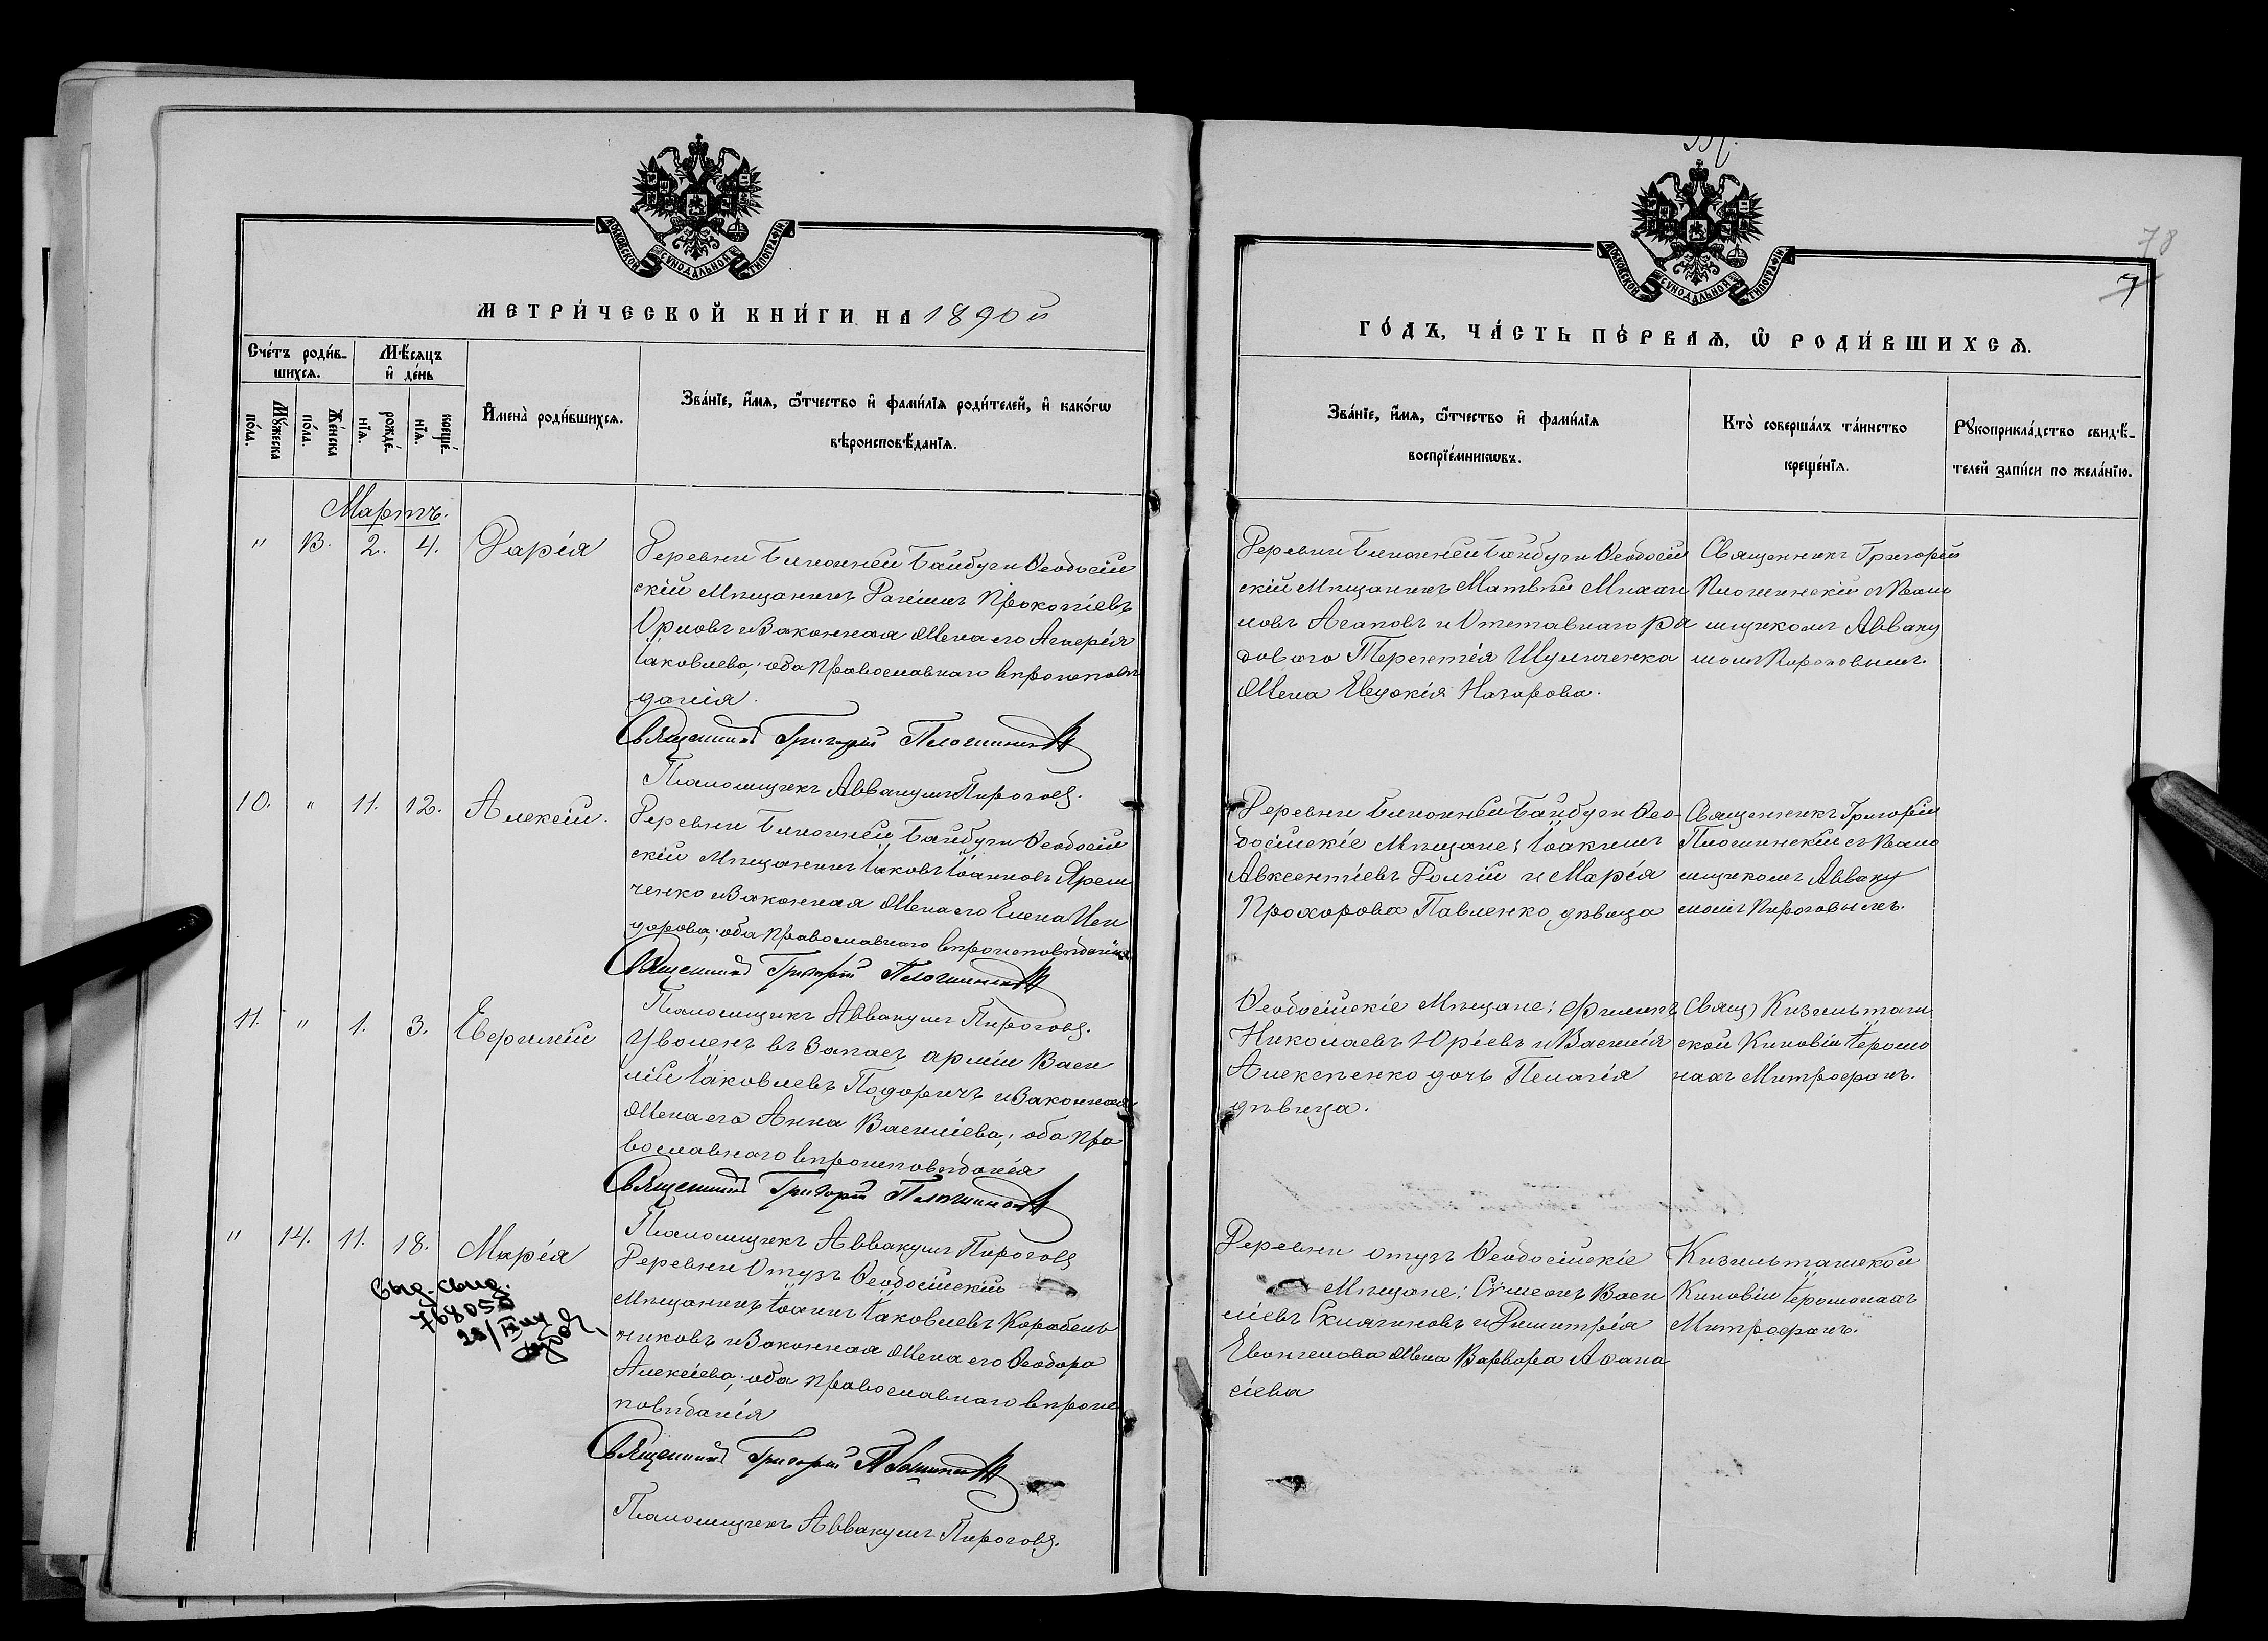 МОСКОВСКОЙ СѴНОДАЛЬНОЙ ТИПОГРАФІИ
МЕТРИ́ЧЕСКОЙ КНИ́ГИ НА 1890 й
Сче́тъ роди́вшихсѧ.
Мѣ́сѧцъ и҆ де́нь
Мꙋ́жеска по́ла.
Же́нска по́ла.
рожде́нїѧ.
креще́нїѧ.
И҆мена̀ роди́вшихсѧ.
Зва́нїе, и҆́мѧ, ѻ҆́тчество и҆ фами́лїѧ роди́телей, и҆ како́гѡ
вѣроисповѣ́данїѧ.
Мартъ.
" 13. 2. 4. Дарія
Деревни Ближней Байбуги Ѳеодосій
скій Мѣщанинъ Даніилъ Прокопіевъ
Орловъ и Законная Жена его Гликерія
Іаковлева; оба Православнаго вѣроисповѣ
данія.
Священникъ Григорій
Псаломщикъ Аввакумъ Пироговъ.
10. " 11. 12. Алексій.
Деревни Ближней Байбуги Ѳеодосій
скій Мѣщанинъ Іаковъ Іоанновъ Ярем
ченко и Законная Жена его Елена Иси
дорова; оба Православнаго вѣроисповѣданія
Священникъ Григорій
Псаломщикъ Аввакумъ Пироговъ.
11. " 1. 3. Евфимій
Уволенъ въ Запасъ арміи Васи
лій Іаковлевъ Подоричъ и Законная
Жена его Анна Василіева; оба Пра
вославнаго вѣроисповѣданія
Священникъ Григорій
Псаломщикъ Аввакумъ Пироговъ
" 14. 11. 18. Марія
Выд. свид.
Деревни Отузъ Ѳеодосійскій
Мѣщанинъ Іоаннъ Іаковлевъ Корабель
никовъ и Законная Жена его Ѳеодора
Алексіева; оба Православнаго вѣроис
повѣданія
Священникъ Григорій
Псаломщикъ Аввакумъ Пироговъ.
78
7
МОСКОВСКОЙ СѴНОДАЛЬНОЙ ТИПОГРАФІИ
ГО́ДЪ, ЧА́СТЬ ПЕ́РВАѦ, Ѡ҆ РОДИ́ВШИХСѦ.
Зва́нїе, и҆́мѧ, ѻ҆́тчество и҆ фами́лїѧ
воспрїе́мникѡвъ.
Кто̀ соверша́лъ та́инство
креще́нїѧ.
Рꙋкоприкла́дство свидѣ́-
телей за́писи по жела́нїю.
Деревни Ближней Байбуги Ѳеодосій
скій Мѣщанинъ Матвѣй Михаи
ловъ Агаповъ и Отставнаго ря
доваго Терентія Шульженка
Жена Евдокія Назарова.
Священникъ Григорій
Плошинскій съ Псало
мщикомъ Авваку
момъ Пироговымъ.
Деревни Ближней Байбуги Ѳео-
досійскіе Мѣщане: Іоакимъ
Авксентіевъ Долгій и Марія
Прохорова Павленко, дѣвица
Священникъ Григорій
Плошинскій съ Псало
мщикомъ Авваку
момъ Пироговымъ.
Ѳеодосійскіе Мѣщане: Филиппъ
Николаевъ Юріевъ и Василія
Алексѣенко дочь Пелагія
дѣвица.
Свящ) Кизильташ
ской Киновіи Іеромо
нахъ Митрофанъ.
Деревни Отузъ Ѳеодосійскіе
Мѣщане: Сѵмеонъ Васи
ліевъ Склягиновъ и Димитрія
Евангелова Жена Варвара Аѳана
сіева
Кизильташской
Киновіи Іеромонахъ
Митрофанъ.